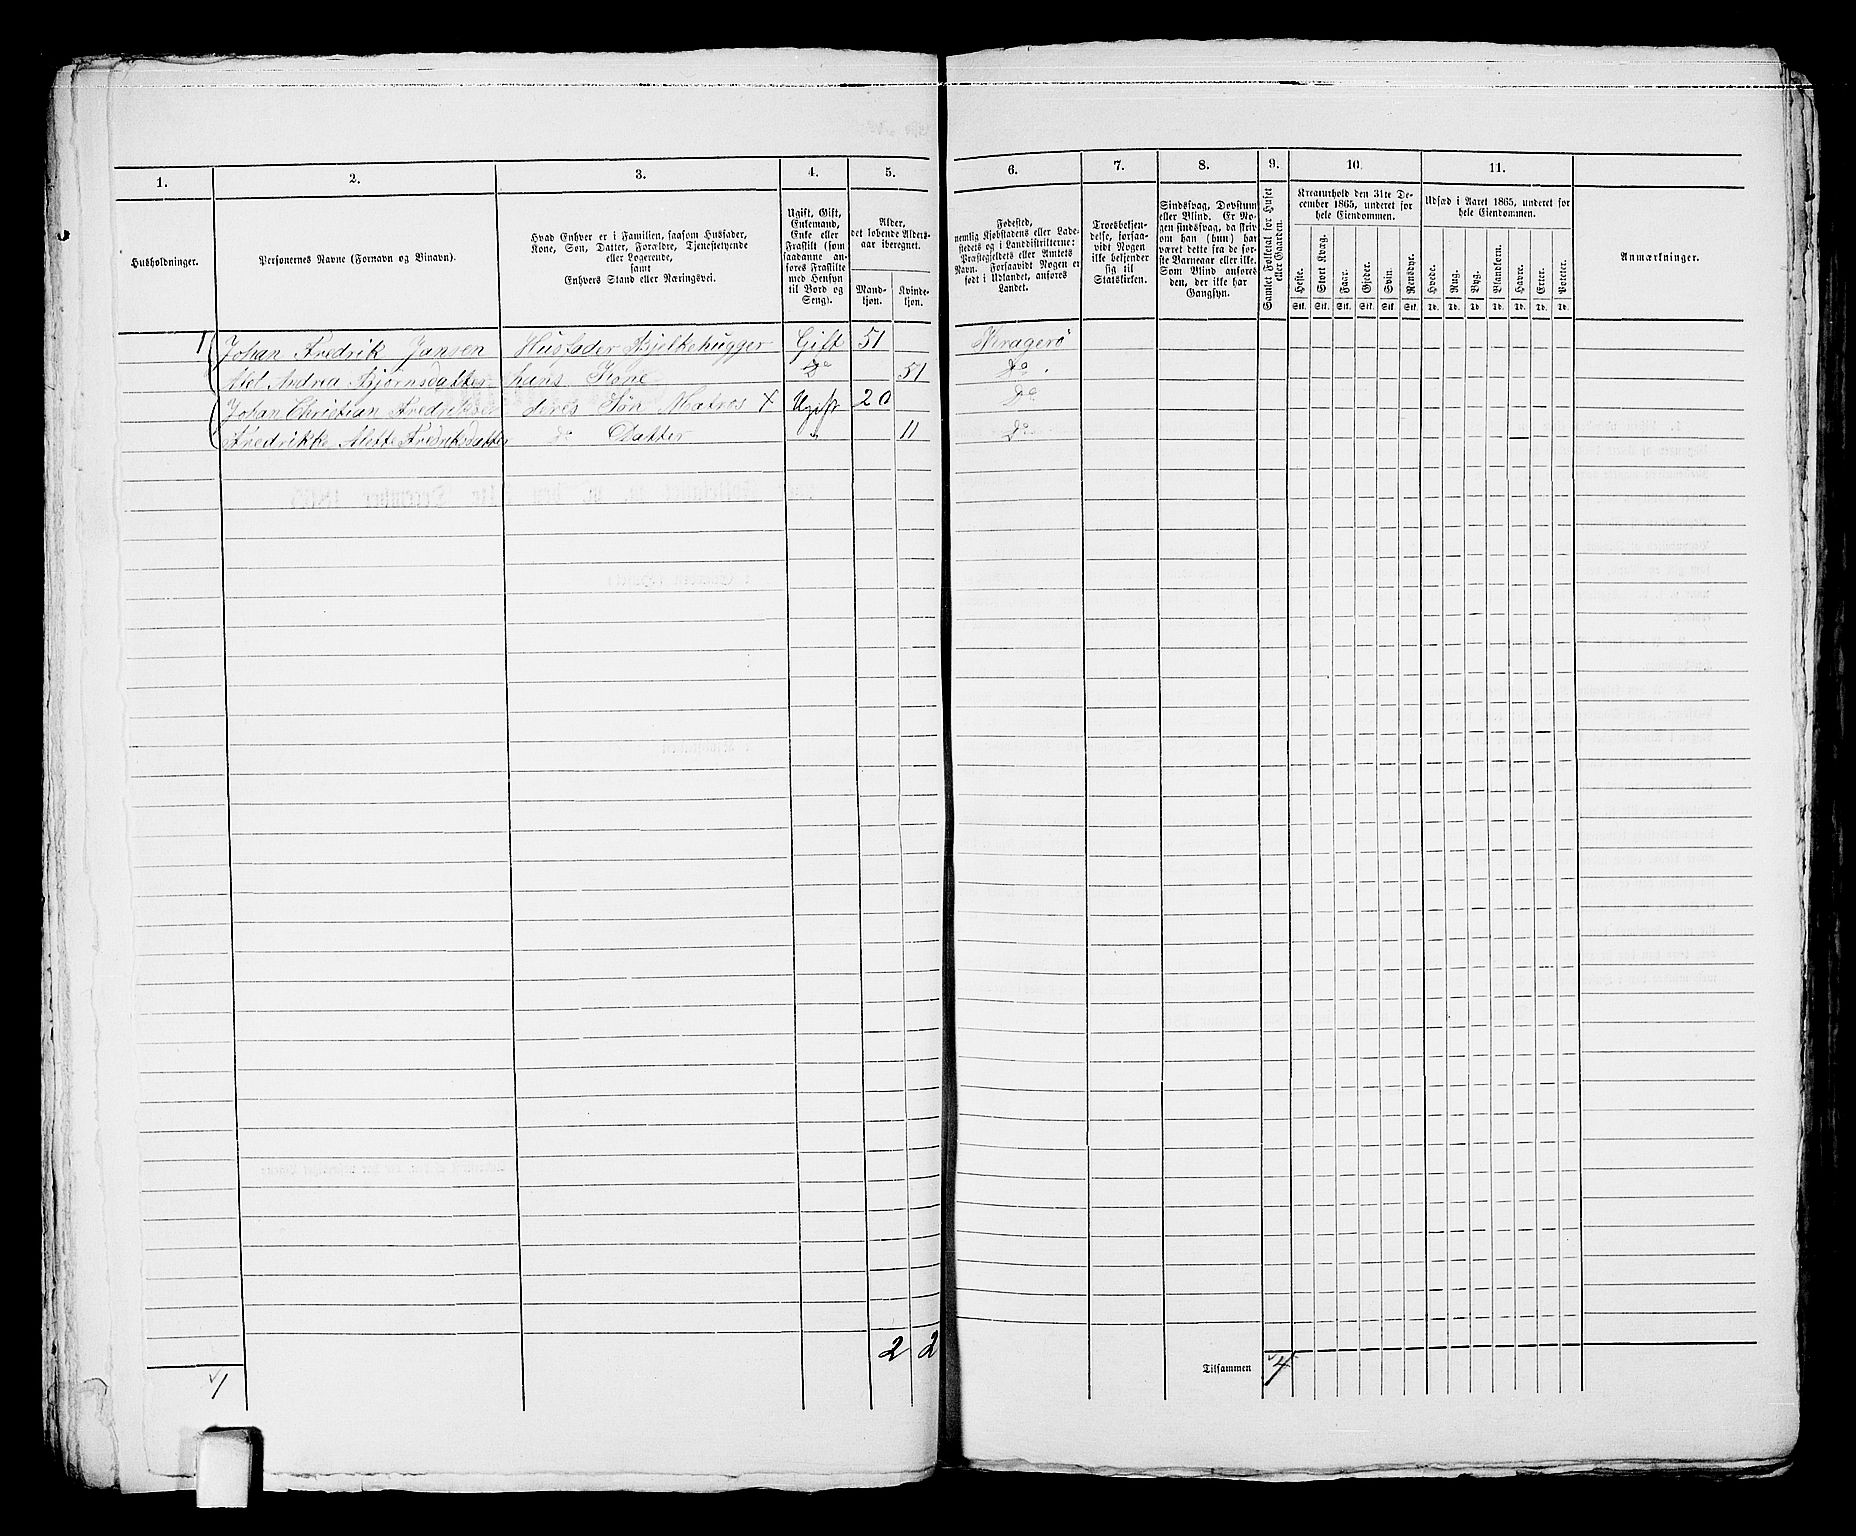 1. 2. 3. 4. 5. 6. 7. 8. 9. 10. 11.
Husholdninger.
Personernes Navne (Fornavn og Binavn).
Hvad Enhver er i Familien, saasom Husfader,
Kone, Søn, Datter, Forældre, Tjenestetyende
eller Logerende,
samt
Enhvers Stand eller Næringsvei.
Ugift, Gift,
Enkemand,
Enke eller
Fraskilt (som
saadanne an-
føres Fraskilte
med Hensyn
til Bord og
Seng).
Alder,
det løbende Alders-
aar iberegnet.
Mand-
kjøn.
Kvinde-
kjøn.
Fødested,
nemlig Kjøbstadens eller Lade-
stedets og i Landdistrikterne:
Præstegjeldets eller Amtets
Navn. Forsaavidt Nogen er
født i Udlandet, anføres
Landet.
Troesbekjen-
delse, forsaa-
vidt Nogen
ikke bekjender
sig til
Statskirken.
Sindssvag, Døvstum
eller Blind. Er No-
gen sindssvag, da skriv
om han (hun) har
været dette fra de før-
ste Barneaar eller ikke.
Som Blind anføres
den, der ikke har
Gangsyn.
Samlet Folketal for Huset
eller Gaarden.
Kreaturhold den 31te De-
cember 1865, underet for
hele Eiendommen.
Heste. Stort Kvæg. Faar. Gjeder. Svin. Rensdyr.
Stk. Stk. Stk. Stk. Stk. Stk.
Udsæd i Aaret 1865, underet for
hele Eiendommen.
Hvede. Rug. Byg. Blandkorn. Havre. Erter. Poteter.
Td. Td. Td. Td. Td. Td. Td.
Anmærkninger.
1 Johan Fredrik Jansen Husfader Bjelkehugger Gift 51 Kragerö
Alel Andrea Bjørnsdatter hans Kone Do 51 Do
Johan Christian Fredriksen deres Søn Matros X Ugift 20 Do
Fredrikke Alette Fredriksdatter do Datter " 11 Do
2 2
Tilsammen 4
1